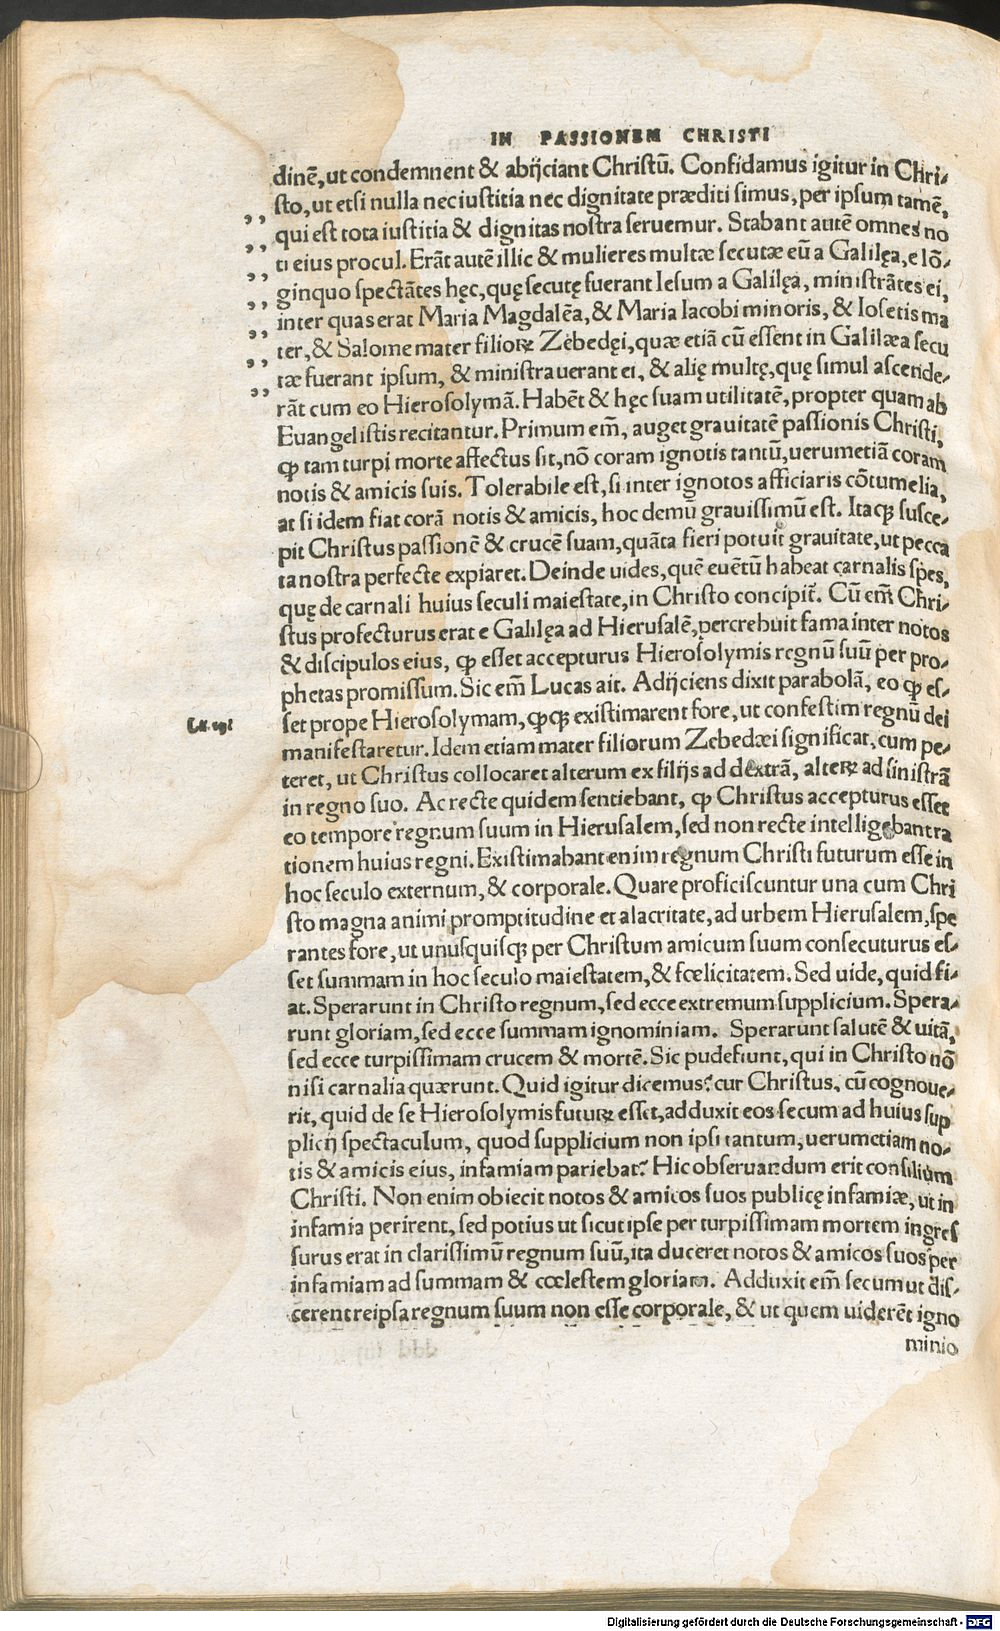 IN PASSIONEM CHRISTI
dinē, ut condemnent & abijciant Christū. Confidamus igitur in Chri-
sto, ut etsi nulla nec iustitia nec dignitate præditi simus, per ipsum tamē,
,, qui est tota iustitia & dignitas nostra seruemur. Stabant autē omnes no
,, ti eius procul. Erāt autē illic & mulieres multæ secutæ eū a Galilęa, e lō-
,, ginquo spectātes hęc, quę secutę fuerant Iesum a Galilęa, ministrātes ei,
,, inter quas erat Maria Magdalēa, & Maria Iacobi minoris, & Iosetis ma
,, ter, & Salome mater filioꝝ Zebedęi, quæ etiā cū essent in Galilæa secu
,, tæ fuerant ipsum, & ministrauerant ei, & alię multę, quę simul ascende-
,, rāt cum eo Hierosolymā. Habēt & hęc suam utilitatē, propter quam ab
Euangelistis recitantur. Primum em̄, auget grauitatē passionis Christi,
ꝙ tam turpi morte affectus sit, nō coram ignotis tantū, uerumetiā coram
notis & amicis suis. Tolerabile est, si inter ignotos afficiaris cōtumelia,
at si idem fiat corā notis & amicis, hoc demū grauissimū est. Itaqꝫ susce-
pit Christus passionē & crucē suam, quāta fieri potuit grauitate, ut pecca
ta nostra perfecte expiaret. Deinde uides, quē euētū habeat carnalis spes,
quę de carnali huius seculi maiestate, in Christo concipit̄. Cū em̄ Chri-
stus profecturus erat e Galilęa ad Hierusalē, percrebuit fama inter notos
& discipulos eius, ꝙ esset accepturus Hierosolymis regnū suū per pro-
phetas promissum. Sic em̄ Lucas ait. Adijciens dixit parabolā, eo ꝙ es-
set prope Hierosolymam, ꝙqꝫ existimarent fore, ut confestim regnū dei
manifestaretur. Idem etiam mater filiorum Zebedæi significat, cum pe-
teret, ut Christus collocaret alterum ex filijs ad dextrā, alteꝝ ad sinistrā
in regno suo. Ac recte quidem sentiebant, ꝙ Christus accepturus esset
eo tempore regnum suum in Hierusalem, sed non recte intelligebant ra
tionem huius regni. Existimabant enim regnum Christi futurum esse in
hoc seculo externum, & corporale. Quare proficiscuntur una cum Chri
sto magna animi promptitudine et alacritate, ad urbem Hierusalem, spe
rantes fore, ut unusquisqꝫ per Christum amicum suum consecuturus es-
set summam in hoc seculo maiestatem, & fœlicitatem. Sed uide, quid fi-
at. Sperarunt in Christo regnum, sed ecce extremum supplicium. Spera-
runt gloriam, sed ecce summam ignominiam. Sperarunt salutē & uitā,
sed ecce turpissimam crucem & mortē. Sic pudefiunt, qui in Christo nō
nisi carnalia quærunt. Quid igitur dicemus? cur Christus, cū cognoue-
rit, quid de se Hierosolymis futuꝝ esset, adduxit eos secum ad huius sup
plicij spectaculum, quod supplicium non ipsi tantum, uerumetiam no-
tis & amicis eius, infamiam pariebat? Hic obseruandum erit consilium
Christi. Non enim obiecit notos & amicos suos publicę infamiæ, ut in
infamia perirent, sed potius ut sicut ipse per turpissimam mortem ingres
surus erat in clarissimū regnum suū, ita duceret notos & amicos suos per
infamiam ad summam & cœlestem gloriam. Adduxit em̄ secum ut dis-
cerent reipsa regnum suum non esse corporale, & ut quem uiderēt igno
minio
Digitalisierung gefördert durch die Deutsche Forschungsgemeinschaft - DFG